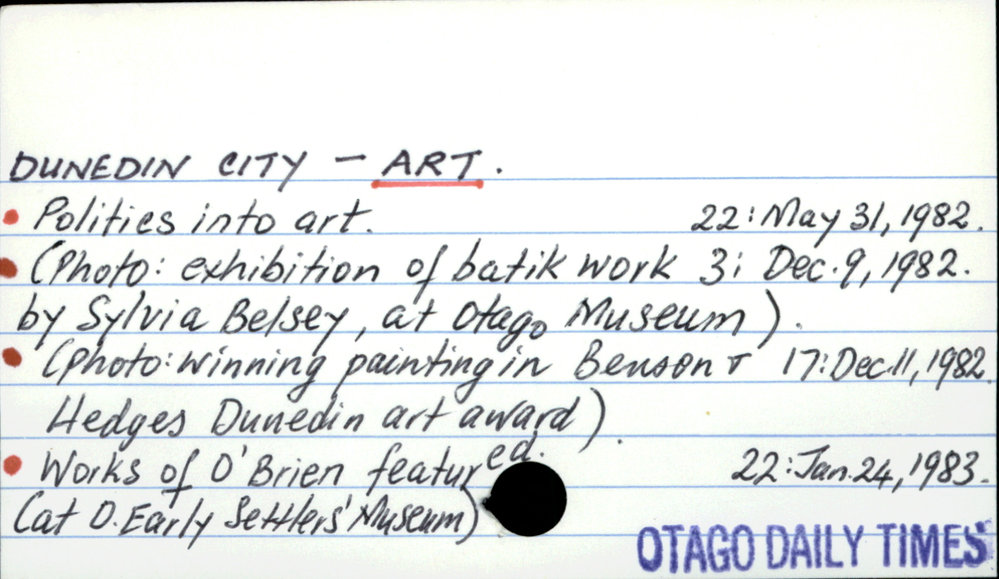 DUNEDIN CITY - ART.
Politics into art. 22: May 31, 1982.
(Photo: exhibition of batik work 3: Dec. 9, 1982.
by Sylvia Belsey, at Otago Museum).
(Photo: winning painting in Benson & 17: Dec. 11, 1982.
Hedges Dunedin art award).
Works of O'Brien featured. 22: Jan. 24, 1983.
(at O. Early Settlers' Museum)
OTAGO DAILY TIMES